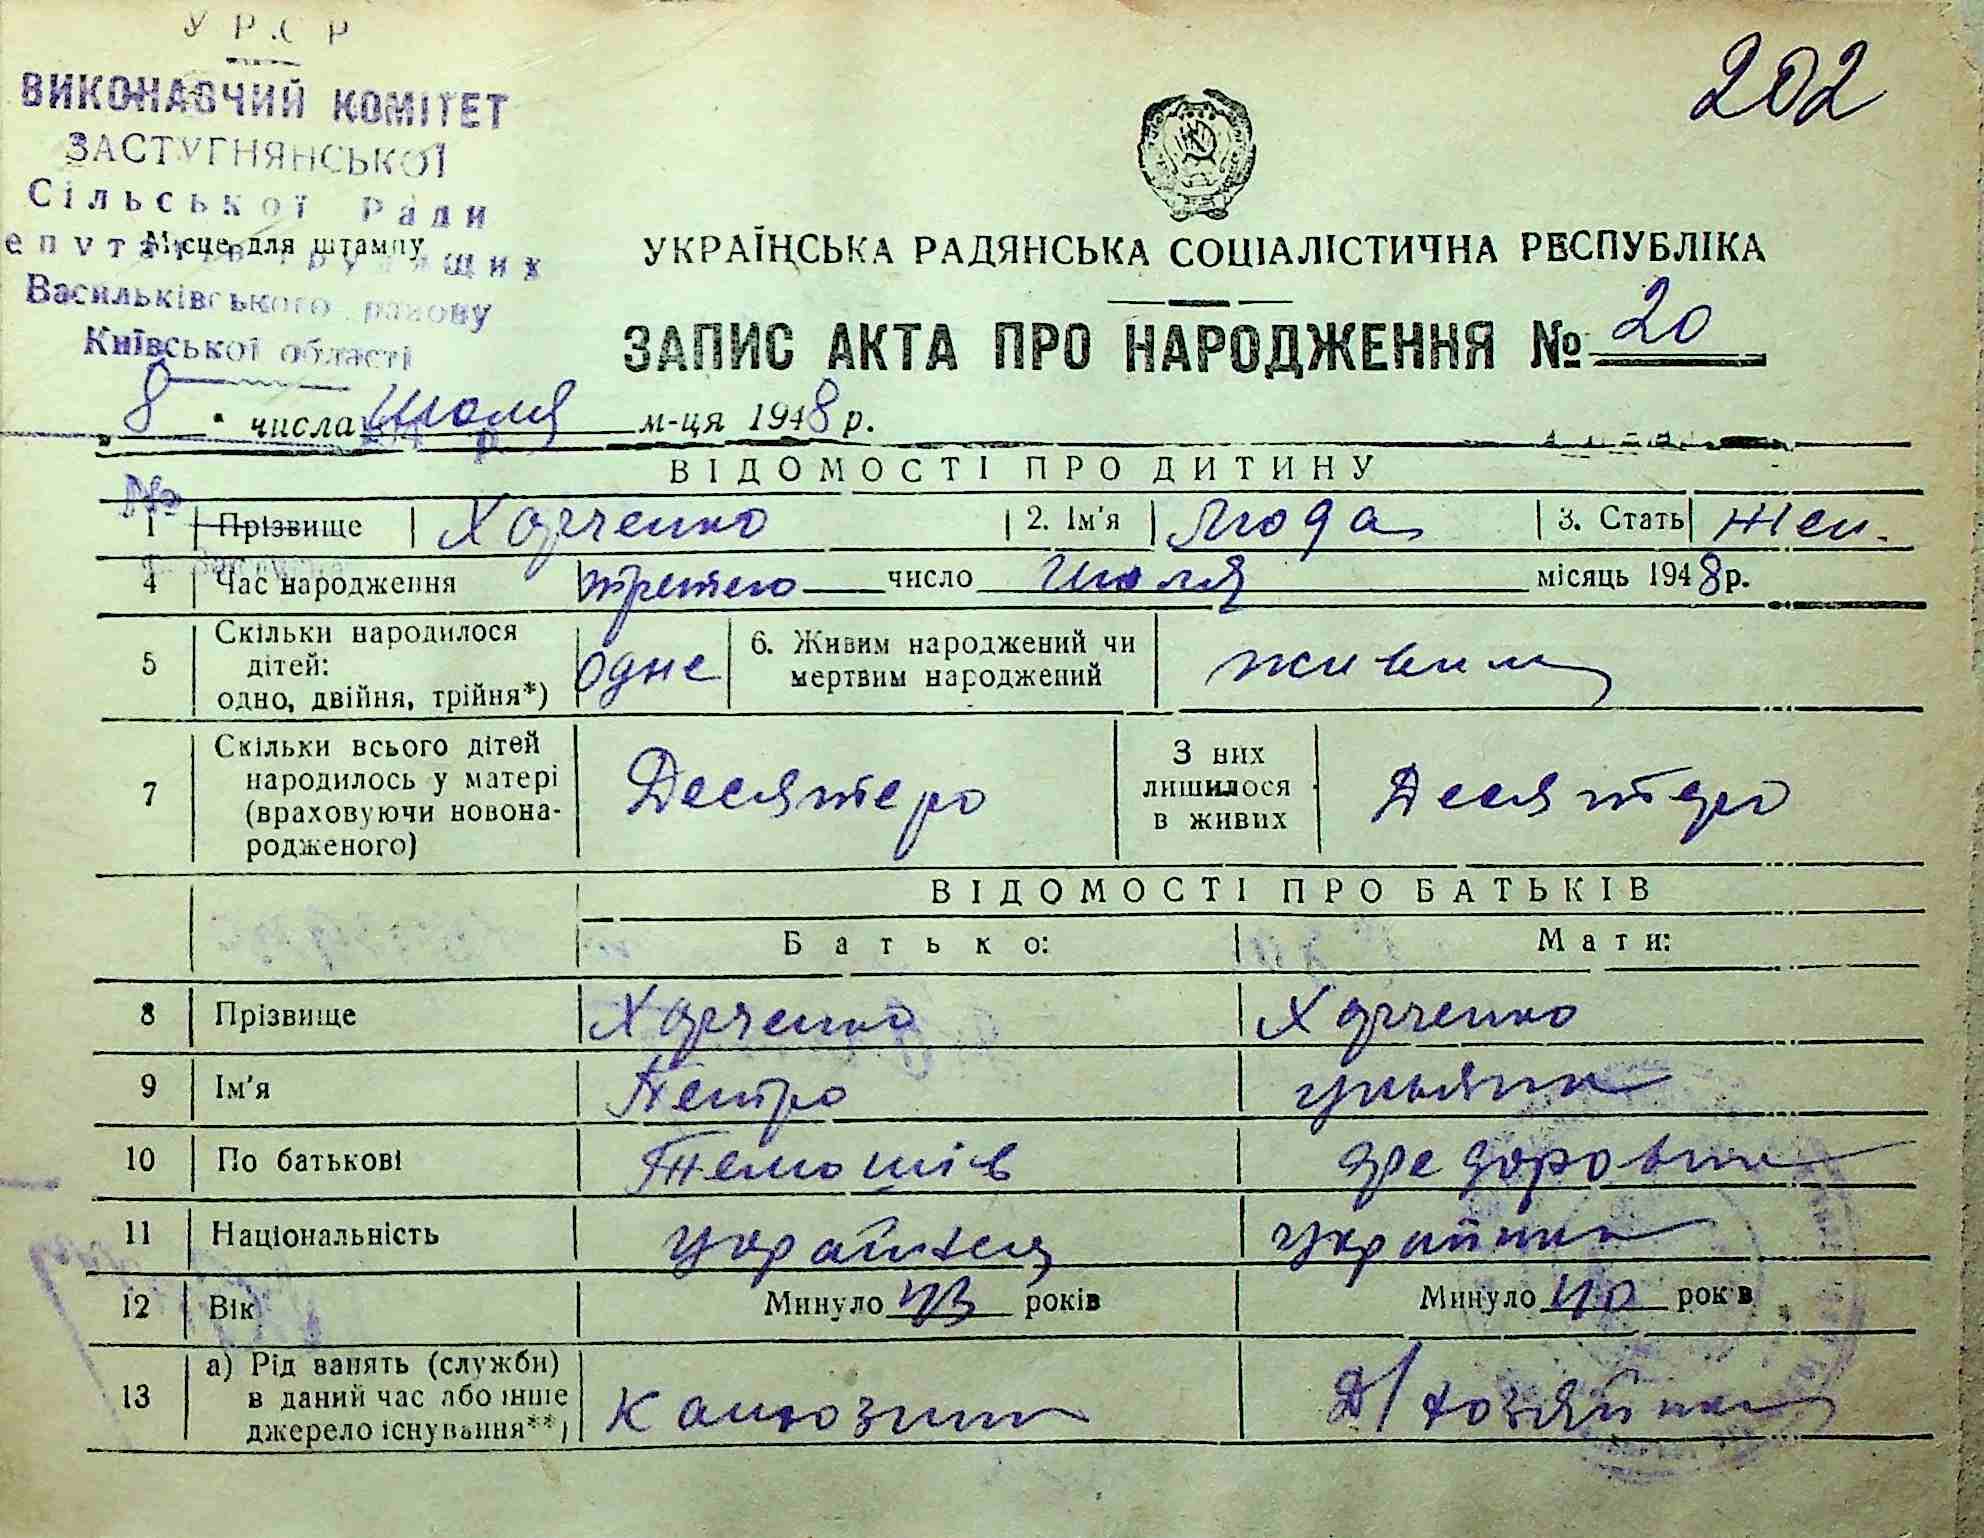 УРСР
ВИКОНАВЧИЙ КОМІТЕТ
ЗАСТУГНЯНСЬКОЇ
Сільської Ради
епутатів трудящих
Васильківського району
Київської області
Місце для штампу
202
УКРАЇНСЬКА РАДЯНСЬКА СОЦІАЛІСТИЧНА РЕСПУБЛІКА
ЗАПИС АКТА ПРО НАРОДЖЕННЯ № 20
8 " числа июля м-ця 1948 р.
ВІДОМОСТІ ПРО ДИТИНУ
1 Прізвище Харченко 2. Ім'я Люда 3. Стать жен.
4 Час народження третего число июля місяць 1948 р.
5 Скільки народилося дітей: одно, двійня, трійня*) одне 6. Живим народжений чи мертвим народжений живим
7 Скільки всього дітей народилось у матері (враховуючи новонародженого) Десятеро З них лишилося в живих Десятеро
ВІДОМОСТІ ПРО БАТЬКІВ
Батько: Мати:
8 Прізвище Харченко Харченко
9 Ім'я Петро Ульяна
10 По батькові Федоровна
11 Національність українец українка
12 Вік Минуло 43 років Минуло 40 років
13 а) Рід занять (служби) в даний час або інше джерело існування**) Д/хозяйка